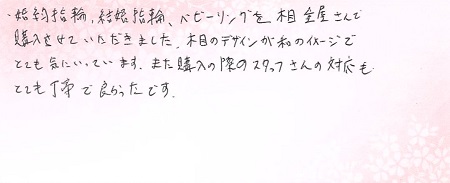 ・婚約指輪、結婚指輪、ベビーリングを杢目金屋さんで
購入させていただきました。木目のデザインが和のイメージで
とても気にいっています。また購入の際のスタッフさんの対応も
とても丁寧で良かったです。